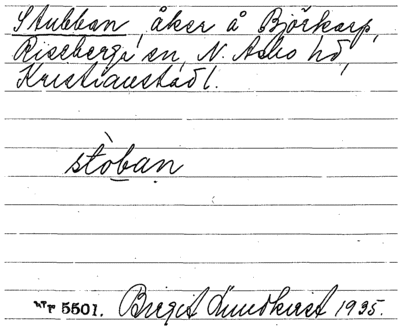 Stubban, åker å Björkarp,
Riseberga sn, N. Asbo hd,
Kristianstad l.
stòban
5501. Birgit Lundkvist 1935.